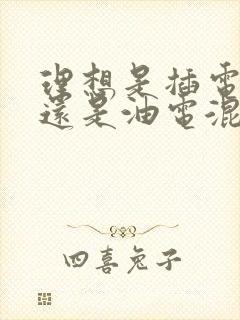 理想是插電
還是油電混
四喜兔子